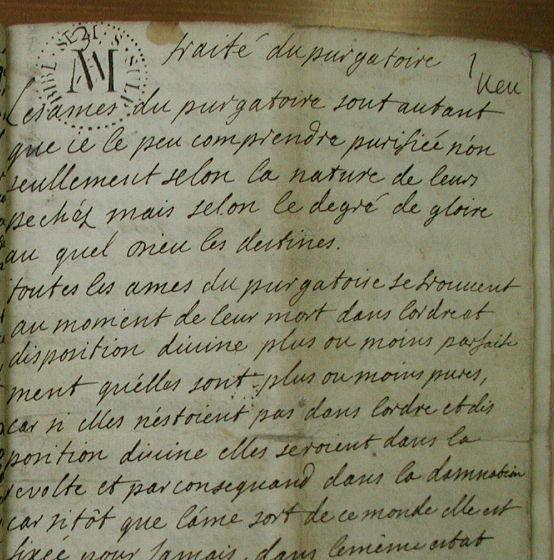 BIBL. SEM. S. SULP.
traité du purgatoire
veu
Les ames du purgatoire sont autant
que ie le peu comprendre purifiée non
seullement selon la nature de leurs
pechéz mais selon le degré de gloire
au quel Dieu les destines.
toutes les ames du purgatoire se trouvent
au moment de leur mort dans lordre et
disposition divine plus ou moins parfaite
ment quélles sont plus ou moins pures,
car si elles n'éstoient pas dans lordre et dis
position divine elles seroient dans la
revolte et par consequand dans la damnation
car sitôt que lâme sort de ce monde elle est
fixée pour jamais, dans lemême estat